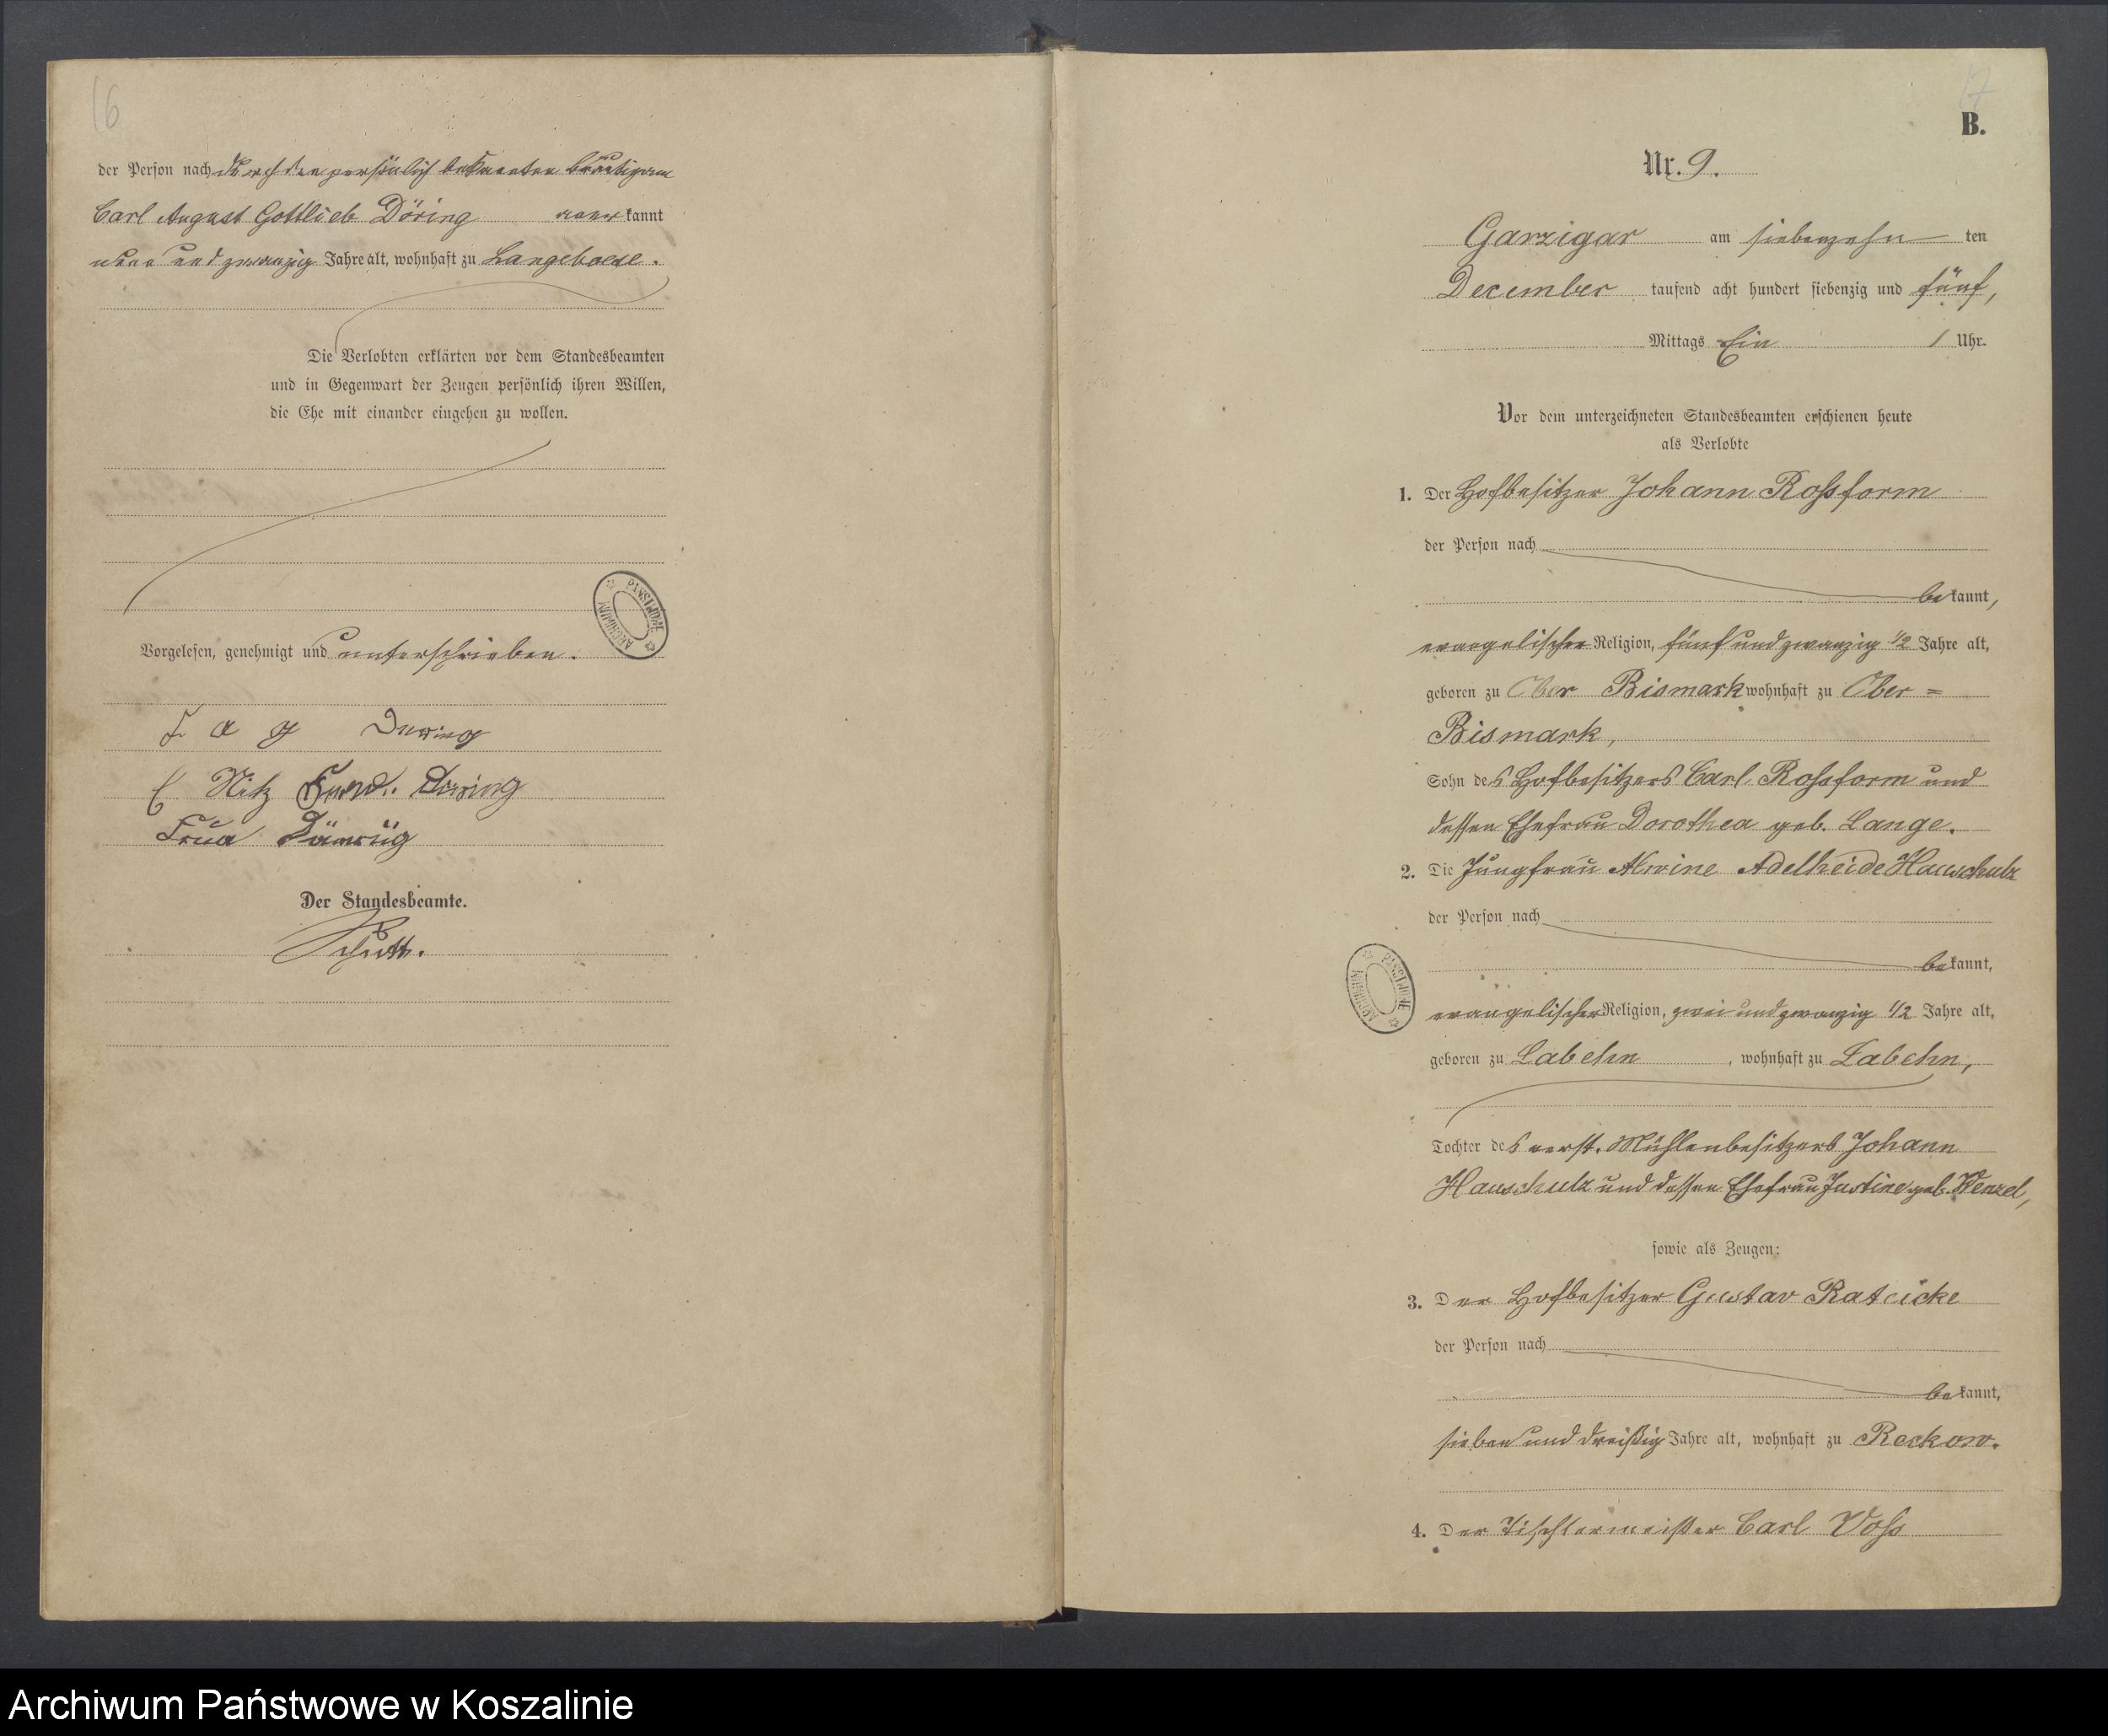 16
der Person nach durch den persönlich bekannten Bräutigam
Carl August Gottlieb Döring anerkannt
neun und zwanzig Jahre alt, wohnhaft zu Langeboese.
Die Verlobten erklärten vor dem Standesbeamten
und in Gegenwart der Zeugen persönlich ihren Willen,
die Ehe mit einander eingehen zu wollen.
Vorgelesen, genehmigt und unterschrieben.
ARCHIWUM PAŃSTWOWE
Nitz Ferd. Dering
Der Standesbeamte.
17
B.
Nr. 9.
Garzigar am siebenzehn ten
December tausend acht hundert siebenzig und fünf,
Mittags Ein 1 Uhr.
Vor dem unterzeichneten Standesbeamten erschienen heute
als Verlobte
1. Der Hofbesitzer Johann Roßform
der Person nach
bekannt,
evangelischer Religion, fünf und zwanzig 1/2 Jahre alt,
geboren zu Ober Bismark wohnhaft zu Ober =
Bismark,
Sohn des Hofbesitzers Carl Roßform und
dessen Ehefrau Dorothea geb. Lange.
2. Die Jungfrau Alwine Adelheide Hauschulz
der Person nach
bekannt,
ARCHIWUM PAŃSTWOWE
evangelischer Religion, zwei und zwanzig 1/2 Jahre alt,
geboren zu Labehn, wohnhaft zu Labehn,
Tochter des verst. Mühlenbesitzers Johann
Hauschulz und dessen Ehefrau Justine geb. Wenzel,
sowie als Zeugen:
3. Der Hofbesitzer Gustav Ratzicke
der Person nach
bekannt,
sieben und dreißig Jahre alt, wohnhaft zu Reckow.
4. Der Tischlermeister Carl Voß
Archiwum Państwowe w Koszalinie